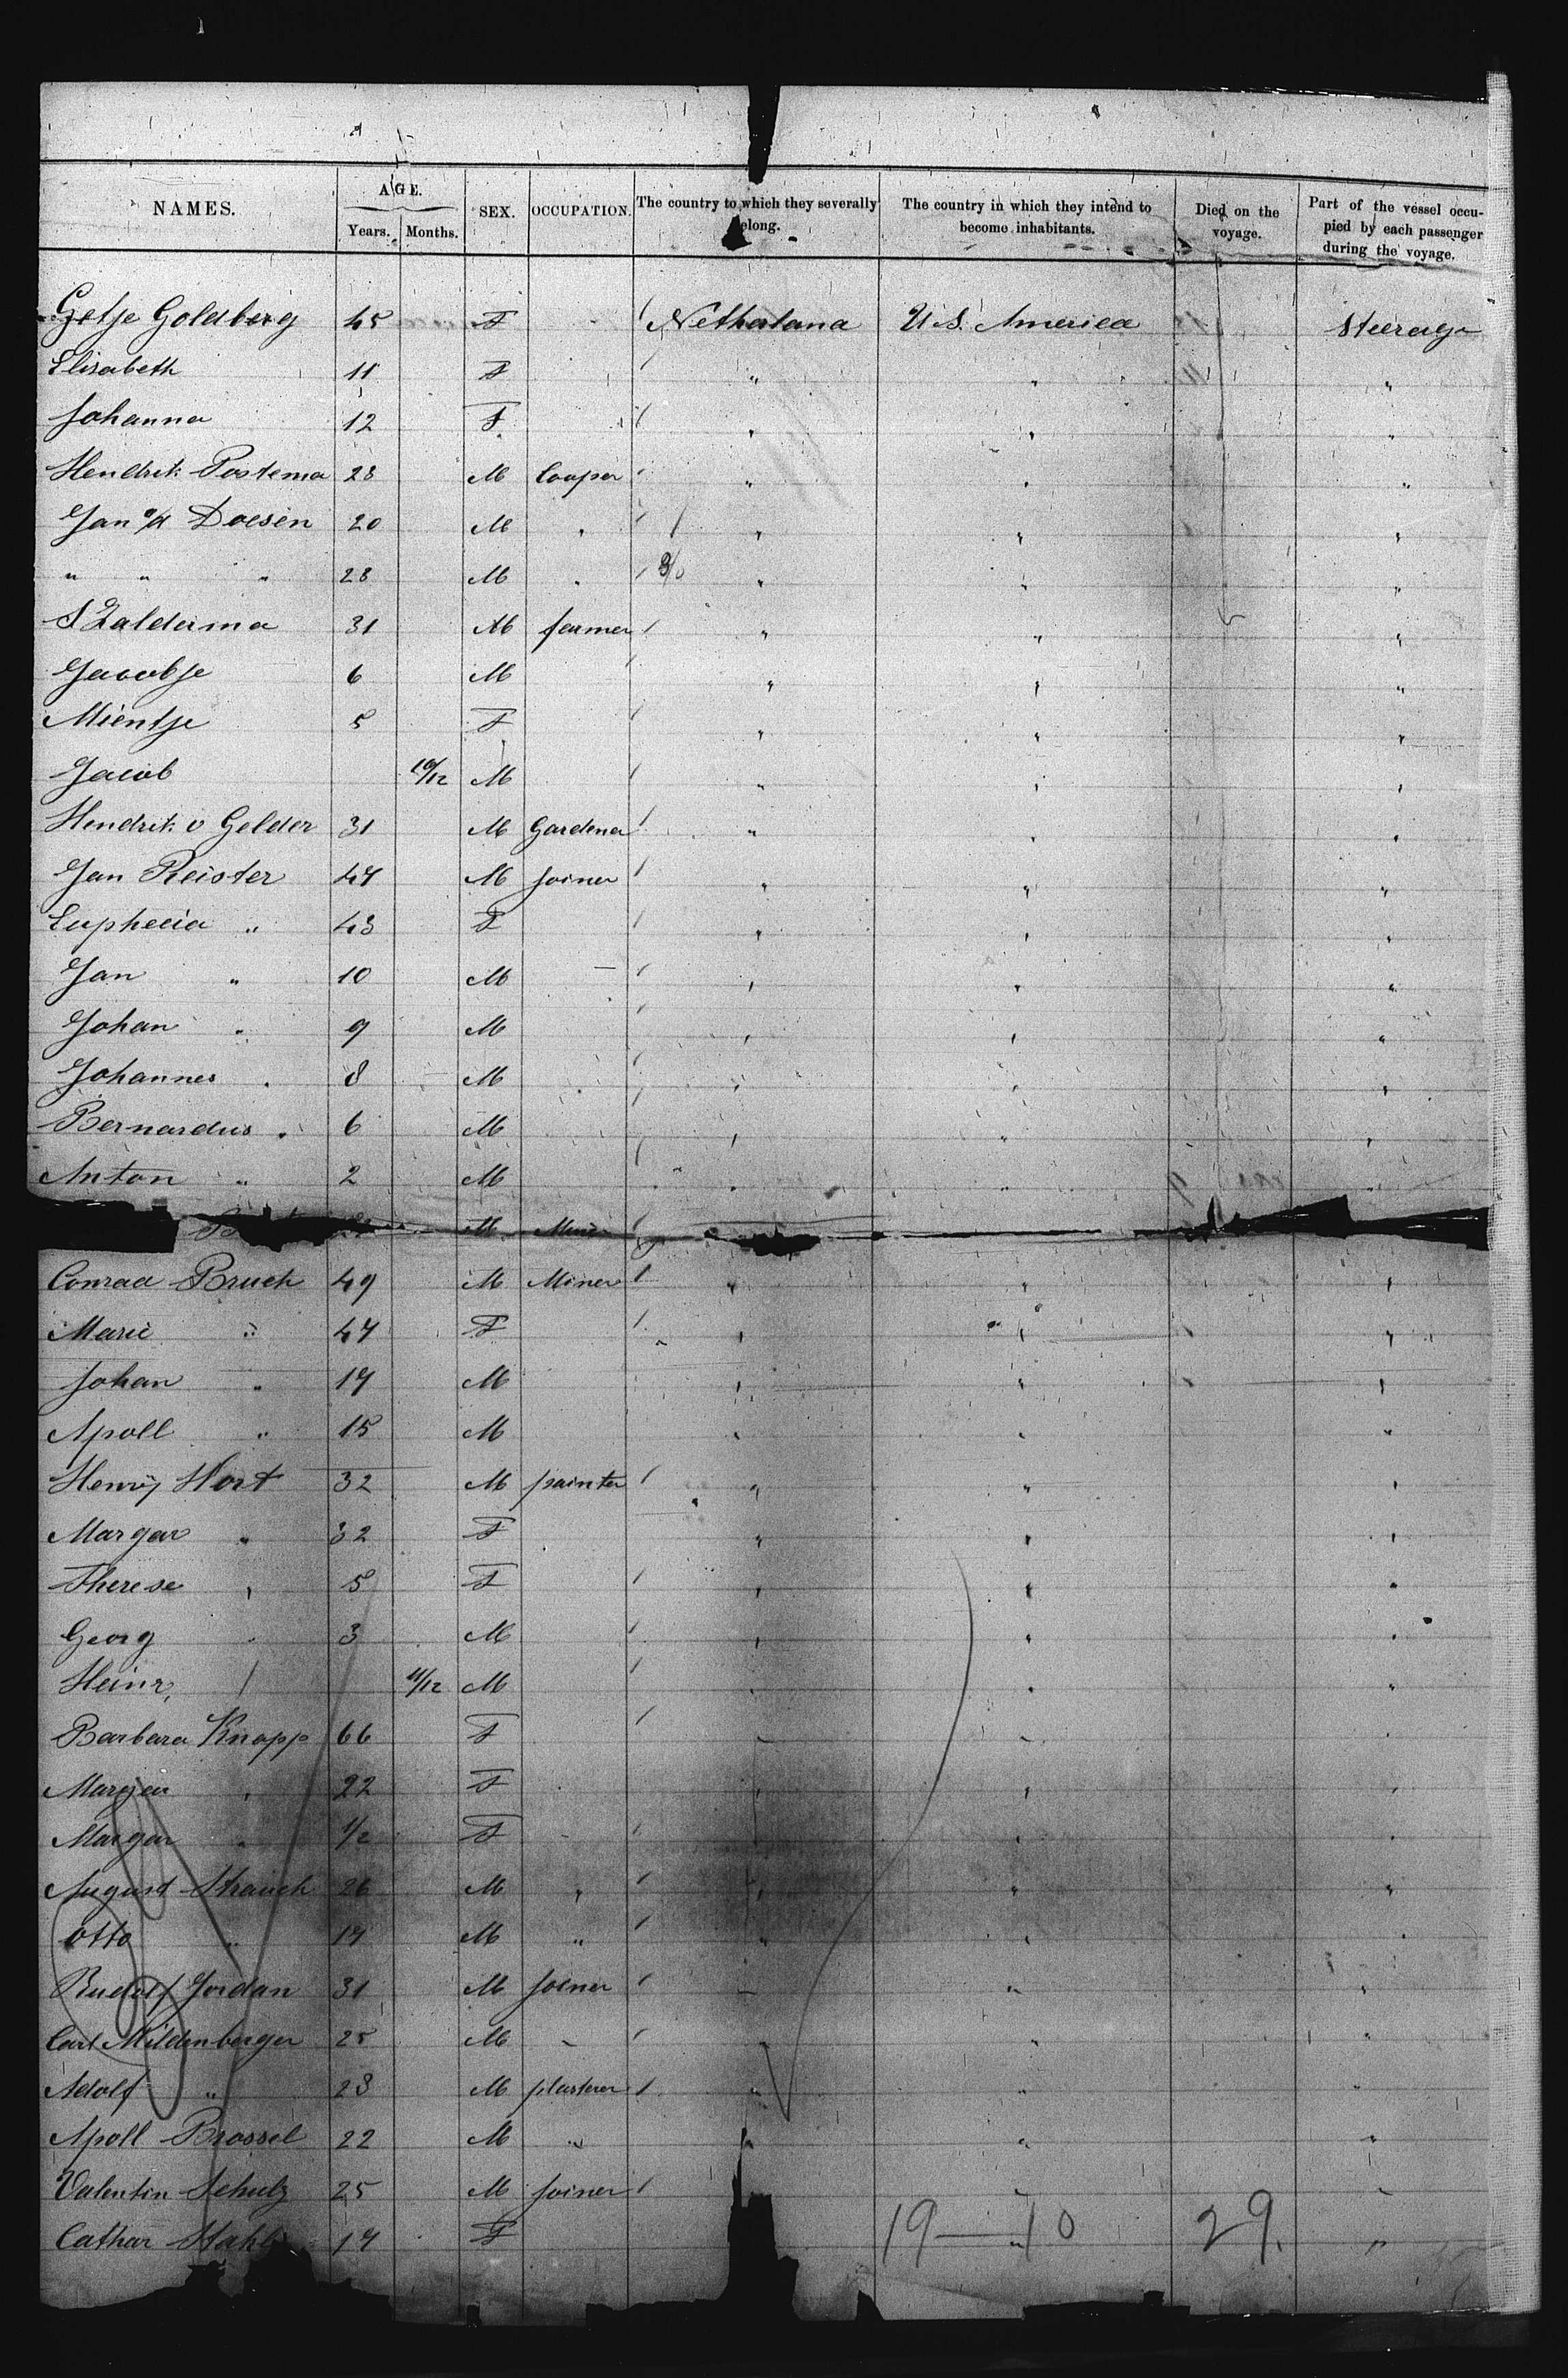 NAMES. AGE. Years. Months. SEX. OCCUPATION. The country to which they severally elong. The country in which they intend to become inhabitants. Died on the voyage. Part of the vessel occupied by each passenger during the voyage.
Getje Goldberg 45 F Netherland U.S. America steerage
Elisabeth 11 F " " "
Johanna 12 F " " "
Hendrik Postema 28 M Cooper " " "
Jan v/d Doesen 20 M " " " "
" " " 28 M " " " "
S Zalderma 31 M farmer " " "
Jacobje 6 M " " "
Mientje 5 F " " "
Jacob 10/12 M " " "
Hendrik v Gelder 31 M Gardener " " "
Jan Reister 47 M joiner " " "
Euphecia " 43 F " " "
Jan " 10 M " " "
Johan " 9 M " " "
Johannes " 8 M " " "
Bernardus " 6 M " " "
Anton " 2 M " " "
M Miner
Conrad Bruch 49 M Miner " " "
Marie " 47 F " " "
Johan " 17 M " " "
Apoll " 15 M " " "
Henry Hort 32 M painter " " "
Margar " 32 F " " "
Therese " 5 F " " "
Georg " 3 M " " "
Heinr. 11/12 M " " "
Barbara Knapp 66 F " " "
Margar " 22 F " " "
Margar " 1/2 F " " "
August Strauch 26 M " " " "
Otto " 17 M " " " "
Rudolf Jordan 31 M Joiner " " "
Carl Mildenberger 25 M " " " "
Adolf " 23 M plasterer " " "
Apoll Brossel 22 M " " " "
Valentin Schulz 25 M joiner " " "
Cathar 17 F " "
19—10 29.